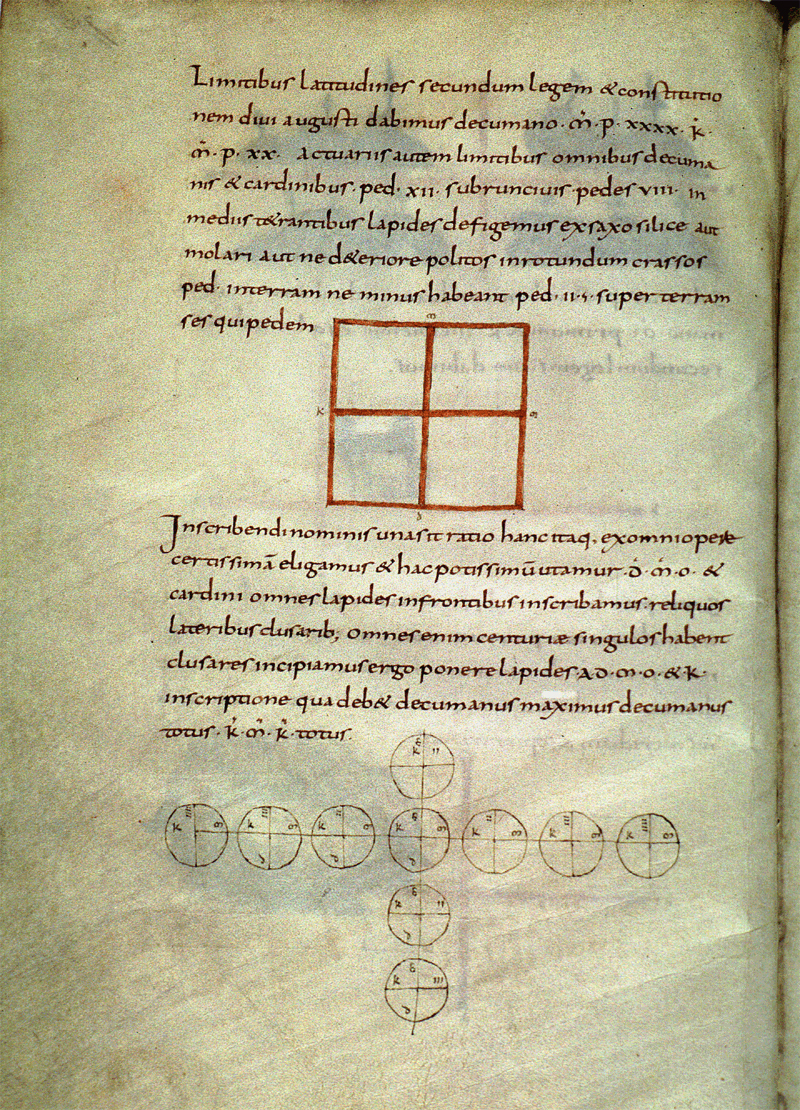 Limitibus latitudines secundum legem & constitutio
nem diui augusti dabimus decumano · m̊ · p · xxxx · k̊ ·
m̊ · p · xx · Actuariis autem limitibus omnibus decuma
nis & cardinibus · ped · xii · subrunciuis · pedes viii · in
mediis t&rantibus lapides defigemus ex saxo silice aut
molari aut ne d&eriore politos in rotundum crassos
ped · interram ne minus habeant ped · ii · s · super terram
sesquipedem
k
Inscribendi nominis una sit ratio hanc itaq, ex omni opere
certissimā eligamus & hac potissimū utamur · d̊ · m̊ · o · &
cardini omnes lapides in frontibus inscribamus · reliquos
lateribus clusarib; omnes enim centuriæ singulos habent
clusares incipiamus ergo ponere lapides A D · m · o · & k ·
inscriptione qua deb& decumanus maximus decumanus
totus · k̊ · m̊ · k̊ · totus ·
k ii
k iiii k iii k ii k k ii k iii k iiii
k ii
k iii